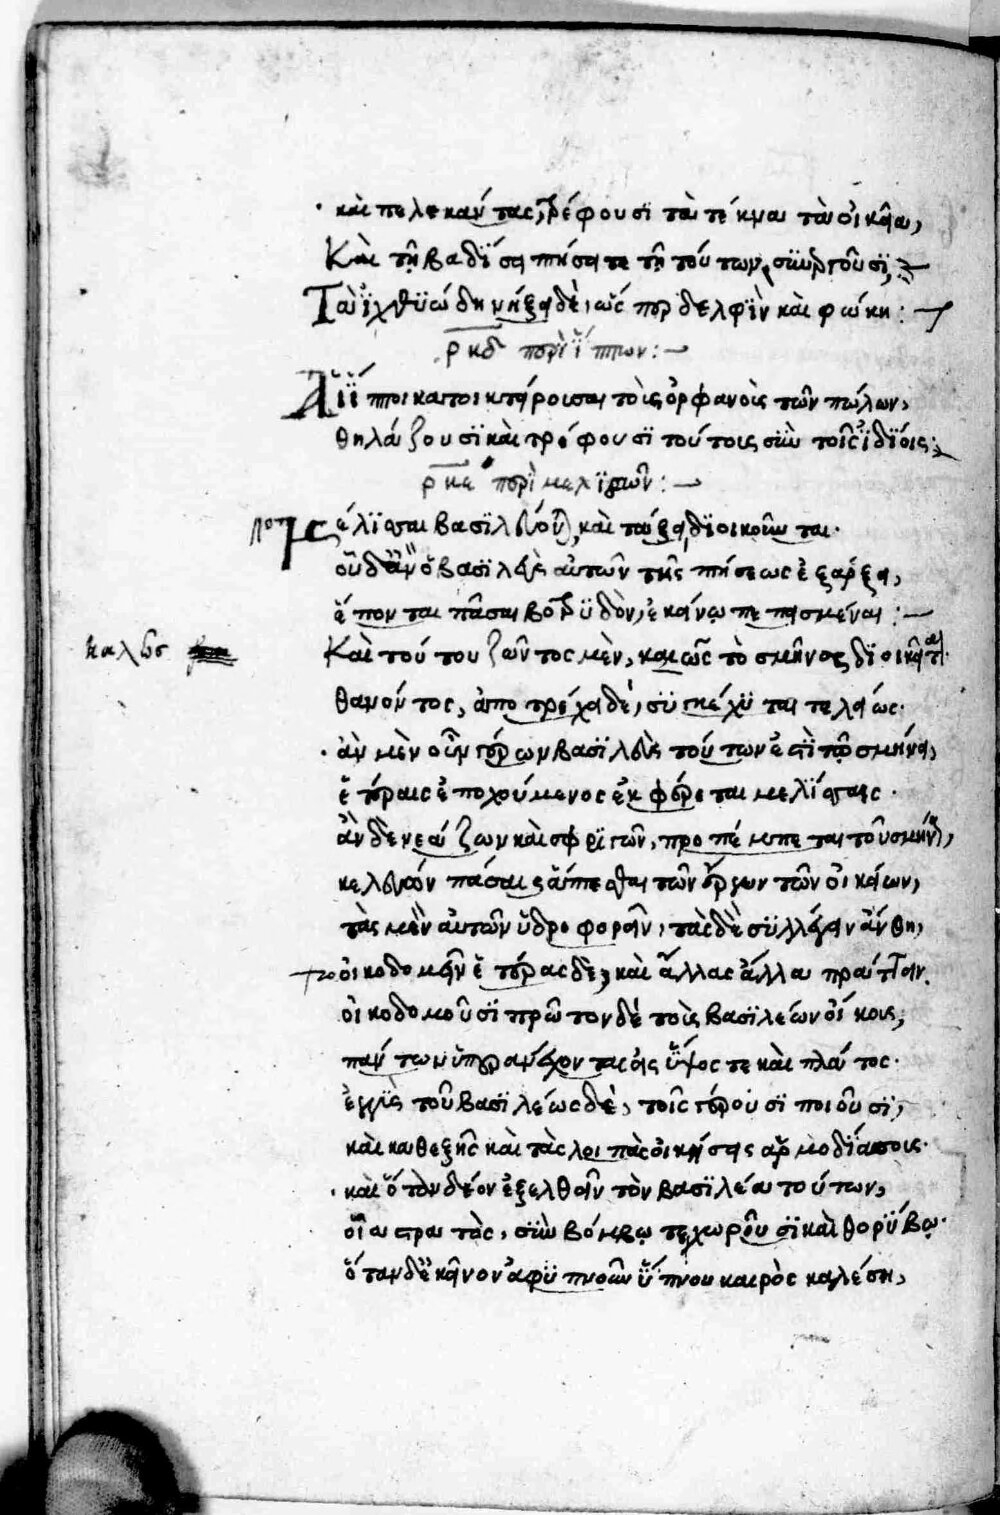 καὶ πελεκᾶντας, τρέφουσϊ τὰ τέκνα τὰ οἰκεῖα,
Καὶ τῇ βαδΐσει πτήσει τε τῇ τούτων συντρέχουσϊ
Τὰ ἰχθϋώδη νήξει δὲ, ὥσπερ δελφὶν καὶ φώκη :
ρκδ περὶ ἵππων :
Αἱ ἵπποι κατοικτείρουσαι τοὺς ὀρφανοὺς τῶν πώλων,
θηλάζουσϊ καὶ τρέφουσϊ τούτους σὺν τοῖς ἰδΐοις :
ρκε περὶ μελϊσσῶν :
μέλϊσσαι βασϊλεύονται, καὶ τάξει δϊοικοῦνται·
οὗ δ' ἂν ὁ βασϊλεὺς αὐτῶν τῆς πτήσεως ἐξάρξει,
ἕπονται πᾶσαι βοτρϋδὸν, ἐκείνῳ πεπεισμέναι :
καλῶς
Καὶ τούτου ζῶντος μὲν, καλῶς τὸ σμῆνος δϊοικεῖται·
θανόντος, ἀποτρέχει δὲ, συγκέχϋται τελείως·
ἂν μὲν οὖν γέρων βασϊλεὺς τούτων ἐστὶ τῷ σμήνει,
ἑτέραις ἐποχούμενος ἐκφέρεται μελΐσσαις·
ἂν δὲ νεάζων καὶ σφριγῶν, προπέμπεται τοῦ σμήνους,
κελεύων πάσαις ἅπτεσθαι τῶν ἔργων τῶν οἰκείων,
τὰς μὲν αὐτῶν ὑδροφορεῖν, τὰς δὲ σϋλλέγειν ἄνθη,
οἰκοδομεῖν ἑτέρας δὲ, καὶ ἄλλας ἄλλα πράττειν.
οἰκοδομοῦσϊ πρῶτον δὲ τοὺς βασϊλέων οἴκους,
πάντων ὑπερανέχοντας εἰς ὕψος τε καὶ πλάτος·
ἐγγὺς τοῦ βασϊλέως δὲ, τοῖς γέρουσϊ ποιοῦσϊ,
καὶ καθεξῆς καὶ τὰς λοιπὰς οἰκήσεις ἁρμοδΐας τοῖς·
καὶ ὅταν δέον ἐξελθεῖν τὸν βασϊλέα τούτων,
οἷα στρατὸς, σὺν βόμβῳ τε χωροῦσϊ καὶ θορύβῳ·
ὅταν δὲ κεῖνον ἀφϋπνοῦν ὕπνου καιρὸς καλέσῃ,